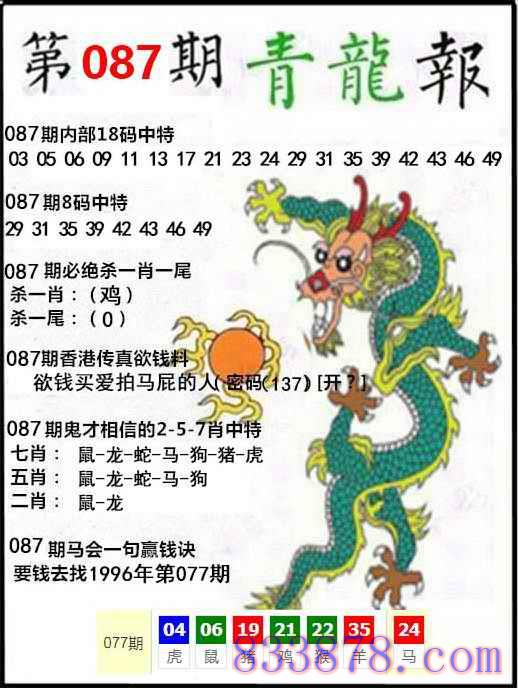 第087期青龍報
087期内部18码中特
03 05 06 09 11 13 17 21 23 24 29 31 35 39 42 43 46 49
087期8码中特
29 31 35 39 42 43 46 49
087期必绝杀一肖一尾
杀一肖：（鸡）
杀一尾：（0）
087期香港传真欲钱料
欲钱买爱拍马屁的人(密码(137)[开?]
087期鬼才相信的2-5-7肖中特
七肖： 鼠-龙-蛇-马-狗-猪-虎
五肖： 鼠-龙-蛇-马-狗
二肖： 鼠-龙
087期马会一句赢钱诀
要钱去找1996年第077期
077期 04 06 19 21 22 35 24
虎 鼠 猪 鸡 猴 羊 马
833878.com